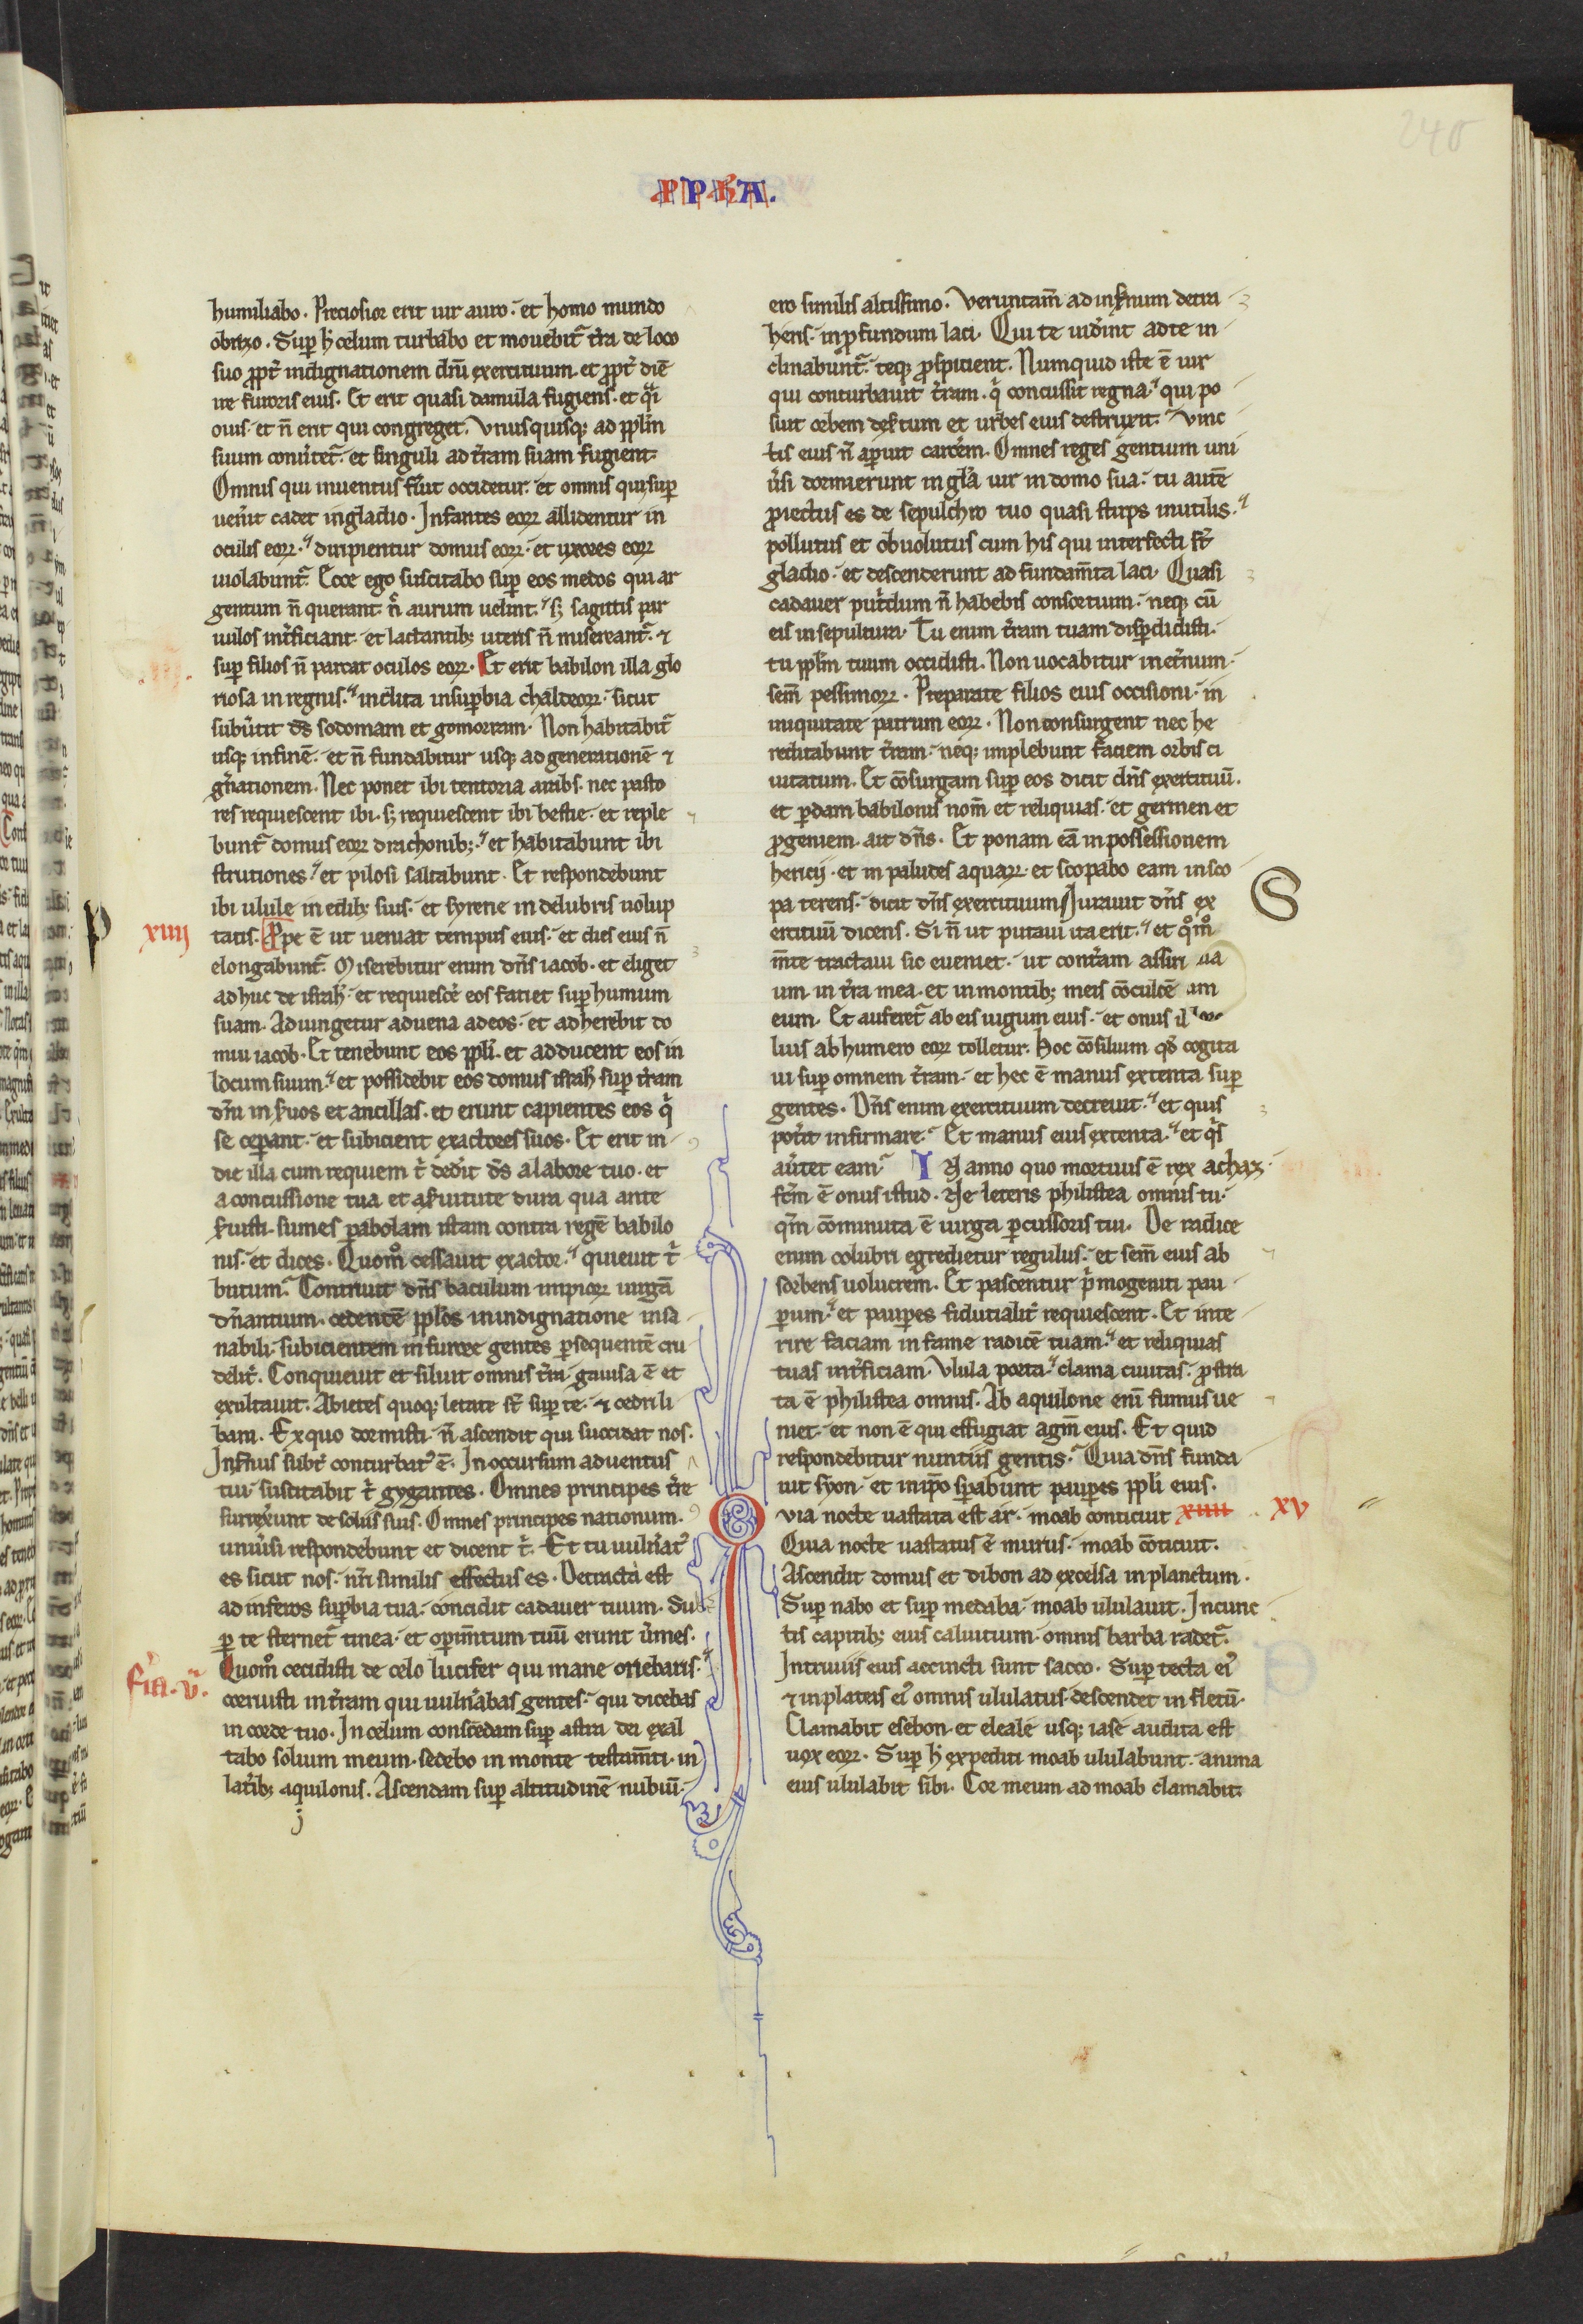 240
PPHA.
humiliabo. Preciosior erit uir auro. et homo mundo
obrizo. Sup̱ h̄ celum turbabo et mouebit̄ t̄ra de loco
suo p̱pt̄ indignationem dn̄i exercituum. et p̱pt̄ diē
ire furoris eius. Et erit quasi damula fugiens. et q̄i
ouis. et n̄ erit qui congreget. Vnusquisq; ad pp̄lm
suum conu̓tet̄. et singuli ad t̄ram suam fugient.
Omnis qui inuentus fu̓it occidetur. et omnis qui sup̱
uen̓it cadet in gladio. Infantes eoꝝ allidentur in
oculis eoꝝ. diripientur domus eoꝝ. et uxores eoꝝ
uiolabunt̄. Ecce ego suscitabo sup̱ eos medos qui ar
gentum n̄ querant n̄ aurum uelint. sꝫ sagittis par
uulos int̓ficiant. et lactantibꝫ uteris n̄ misereant̄. ⁊
sup̱ filios n̄ parcat oculos eoꝝ. Et erit babilon illa glo
riosa in regnis. inclita in sup̱bia chaldeoꝝ. sicut
subu̓tit ds̄ sodomam et gomorram. Non habitabit̄
usqꝫ in finē. et n̄ fundabitur usqꝫ ad generationē ⁊
gn̓ationem. Nec ponet ibi tentoria arabs. nec pasto
res requiescent ibi. sꝫ requiescent ibi bestie. et reple
bunt̄ domus eoꝝ drachonibꝫ. et habitabunt ibi
strutiones. et pilosi saltabunt. Et respondebunt
ibi ulule in edibꝫ suis. et syrene in delubris uolup
P xiiij tatis. Ppe ē ut ueniat tempus eius. et dies eius n̄
elongabunt̄. Miserebitur enim dn̄s iacob. et eliget
adhuc de isrl̄. et requiescē eos faciet sup̱ humum
suam. Adiungetur aduena ad eos. et adherebit do
mui iacob. Et tenebunt eos pp̄li. et adducent eos in
locum suum. et possidebit eos domus isrl̄ sup̱ t̄ram
dn̄i in s̓uos et ancillas. et erunt capientes eos q̓
se cep̱ant. et subicient exactores suos. Et erit in
die illa cum requiem t̓ ded̓it ds̄ a labore tuo. et
a concussione tua et a s̓uitute dura qua ante
s̓uisti. sumes p̱abolam istam contra regē babilo
nis. et dices. Quom̊ cessauit exactor. quieuit t̓
butum. Contriuit dn̄s baculum impioꝝ uirgā
dn̄antium. cedentē pp̄los in indignatione insa
nabili. subicientem in furore gentes p̱sequentē cru
delit̓. Conquieuit et siluit omnis t̓ra. gauisa ē et
exultauit. Abietes quoqꝫ letate st̄ sup̱ te. ⁊ cedri li
bani. Ex quo dormisti. n̄ ascendit qui succidat nos.
Inf̓nus subt̓ conturbat̓ ē. In occursum aduentus
tui. suscitabit t̓ gygantes. Omnes principes t̓re
surrex̓unt de soliis suis. Omnes principes nationum.
uniu̓si respondebunt et dicent t̓. Et tu uuln̓at̓
es sicut nos. nr̄i similis effectus es. Detracta est
ad inferos sup̱bia tua. concidit cadauer tuum. Su
p̱ te sternet̄ tinea. et op̱im̄tum tuū erunt u̓mes.
fia. v. Quom̊ cecidisti de celo lucifer qui mane oriebaris.
corruisti in t̓ram qui uuln̓abas gentes. qui dicebas
in corde tuo. In celum conscēdam sup̱ astra dei exal
tabo solium meum. sedebo in monte testam̄ti. in
lat̓ibꝫ aquilonis. Ascendam sup̱ altitudinē nubiū.
ero similis altissimo. Veruntam̄ ad inf̓num detra
heris. in p̱fundum laci. Qui te uid̓int ad te in
clinabunt̄. teqꝫ p̱spicient. Numquid iste ē uir
qui conturbauit t̓ram. q̓ concussit regna. qui po
suit orbem des̓tum et urbes eius destruxit. Vinc
tis eius n̄ ap̱uit carc̓em. Omnes reges gentium uni
u̓si dormierunt in gl̓a uir in domo sua. tu autē
p̱iectus es de sepulchro tuo quasi stirps inutilis.
pollutus et obuolutus cum his qui interfecti st̄
gladio. et descenderunt ad fundam̄ta laci. Quasi
cadauer put̓dum n̄ habebis consortium. neqꝫ cū
eis in sepultura. Tu enim t̓ram tuam disp̱didisti.
tu pp̄lm tuum occidisti. Non uocabitur in et̓num.
sem̄ pessimoꝝ. Preparate filios eius occisioni. in
iniquitate patrum eoꝝ. Non consurgent nec he
reditabunt t̓ram. neqꝫ implebunt faciem orbis ci
uitatum. Et cōsurgam sup̱ eos dicit dn̄s exercituū.
et p̱dam babilonis nom̄ et reliquias. et germen et
p̱geniem. ait dn̄s. Et ponam eā in possessionem
hericij. et in paludes aquaꝝ. et scopabo eam in sco
pa terens. dicit dn̄s exercituum Iurauit dn̄s ex S
ercituū dicens. Si n̄ ut putaui ita erit. et q̊m̊
m̄te tractaui sic eueniet. ut cont̓am assiri ua
um in t̓ra mea. et in montibꝫ meis cōculcē am
eum. Et auferet̄ ab eis iugum eius. et onus il
lius ab humero eoꝝ tolletur. Hoc cōsilium qd̓ cogita
ui sup̱ omnem t̓ram. et hec ē manus extenta sup̱
gentes. Dn̄s enim exercituum decreuit. et quis
pot̓it infirmare. Et manus eius extenta. et q̓s
au̓tet eam. IN anno quo mortuus ē rex achaz.
fc̄m ē onus istud. Ne leteris philistea omnis tu.
qm̄ cōminuta ē uirga p̱cussoris tui. De radice
enim colubri egredietur regulus. et sem̄ eius ab
sorbens uolucrem. Et pascentur p̓mogeniti pau
p̱um. et paup̱es fidutialit̓ requiescent. Et inte
rire faciam in fame radicē tuam. et reliquias
tuas int̓ficiam. Vlula porta. clama ciuitas. p̱stra
ta ē philistea omnis. Ab aquilone eni̅ fumus ue
niet. et non ē qui effugiat agm̄ eius. Et quid
respondebitur nuntiis gentis. Quia dn̄s funda
uit syon. et in ip̄o sp̱abunt paup̱es pp̄li eius.
Ovia nocte uastata est ar. moab conticuit xiiii xv
Quia nocte uastatus ē murus. moab cōticuit.
Ascendit domus et dibon ad excelsa in planctum.
Sup̱ nabo et sup̱ medaba. moab ululauit. In cunc
tis capitibꝫ eius caluitium. omnis barba radet̄.
In triuiis eius accincti sunt sacco. Sup̱ tecta ei̓
⁊ in plateis ei̓ omnis ululatus. descendet in fletū.
Clamabit esebon. et eleale usqꝫ iase audita est
uox eoꝝ. Sup̱ h̄ expediti moab ululabunt. anima
eius ululabit sibi. Cor meum ad moab clamabit.